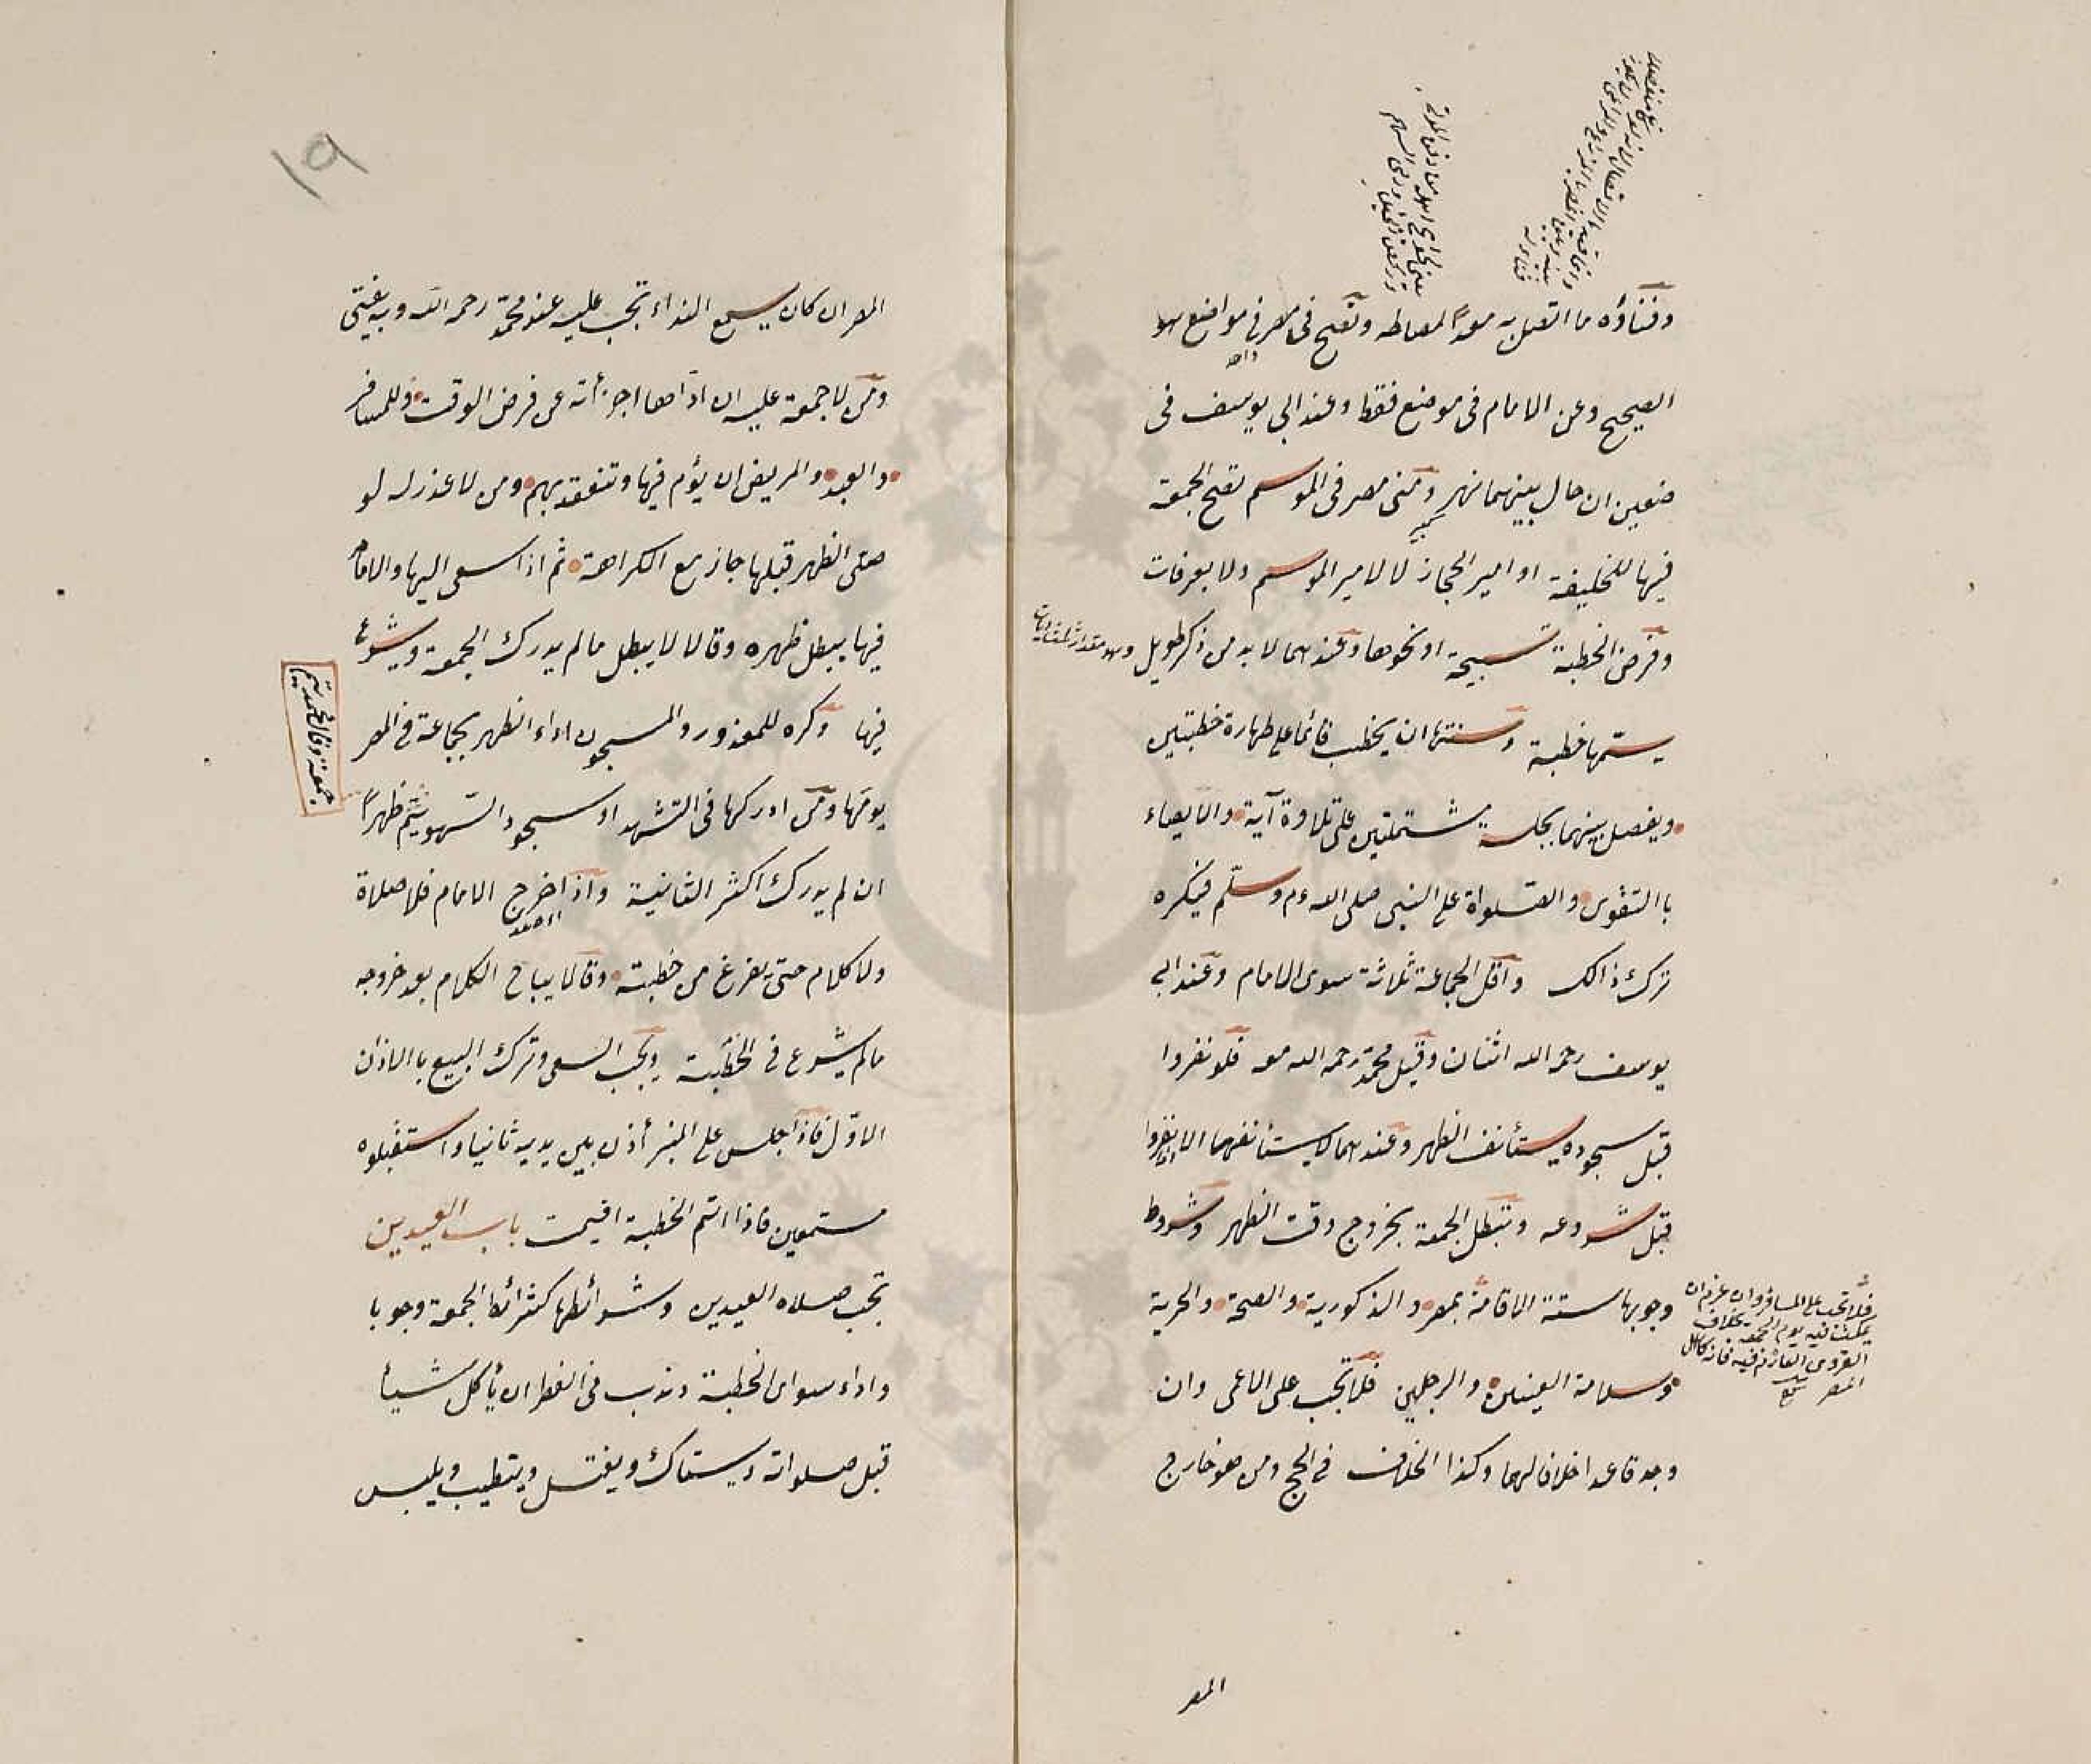 وفناؤه ما اتصل به معدًا لمصالحه وتصح فى مصر فى مواضع هو
الصحيح وعن الامام فى موضع فقط وعند ابى يوسف فى
ضعين ان حال بينهما نهر ومنى مصر فى الموسم تصح الجمعة
فيها للخليفة او امير الحجاز لا لامير الموسم ولا بعرفات
وفرض الخطبة تسبيحة او نحوها وعندهما لا بد من ذكر طويل
يسمّها خطبة وسنتها ان يخطب قائما على طهارة خطبتين
ويفصل بينهما بجلسة مشتملتين على تلاوة آية والايصاء
باالتقوى والصلواة على النبى صلى الله عم وسلّم فيكره
ترك ذالك واقل الجماعة ثلاثة سوى الامام وعند ابى
يوسف رحمه الله اثنان وقيل محمّد رحمه الله معه فلو نفروا
قبل سجوده يستأنف الظهر وعندهما لا يستأنفهما الا ان نفروا
قبل شروعه وتبطل الجمعة بخروج وقت الظهر وشروط
وجوبها ستة الاقامة بمصر والذكورية والصحة والحرية
وسلامة العينين والرجلين فلا تجب على الاعمى وان
وجد قاعدا خلافا لهما وكذا الخلاف فى الحج ومن هو خارج
المصر
فلا تجب على المسافر وان عزم ان
يمكث فيه يوم الجمعة بخلاف
القروى العازم فيه فانه كاهل
المصر
١٩
المصر ان كان يسمع النداء تجب عليه عند محمّد رحمه الله وبه يفتى
ومن لا جمعة عليه ان ادّاها اجزأته عن فرض الوقت وللمسافر
والعبد والمريض ان يؤم فيها وتنعقد بهم ومن لا عذر له لو
صلى الظهر قبلها جاز مع الكراهة ثم اذا سعى اليها والامام
فيها يبطل ظهره وقالا لا يبطل مالم يدرك الجمعة ويشرع
فيها وكره للمعذور والمسجون اداء الظهر بجماعة فى المصر
يومها ومن ادركها فى التشهد او سجود السّهو يتم ظهرًا
جمعة وقال محمد يتم
ان لم يدرك اكثر الثانية واذا خرج الامام فلا صلاة
ولا كلام حتى يفرغ من خطبته وقالا يباح الكلام بعد خروجه
مالم يشرع فى الخطبة ويجب السعى وترك البيع باالاذان
الاوّل فاذا جلس على المنبر أذن بين يديه ثانيا واستقبلوه
مستمعين فاذا اتم الخطبة اقيمت باب العيدين
تجب صلاة العيدين وشرائطها كشرائط الجمعة وجوبا
واداء سواى الخطبة وندب فى الفطر ان يأكل شيأ
قبل صلواته ويستاك ويغتسل ويتطيب ويلبس